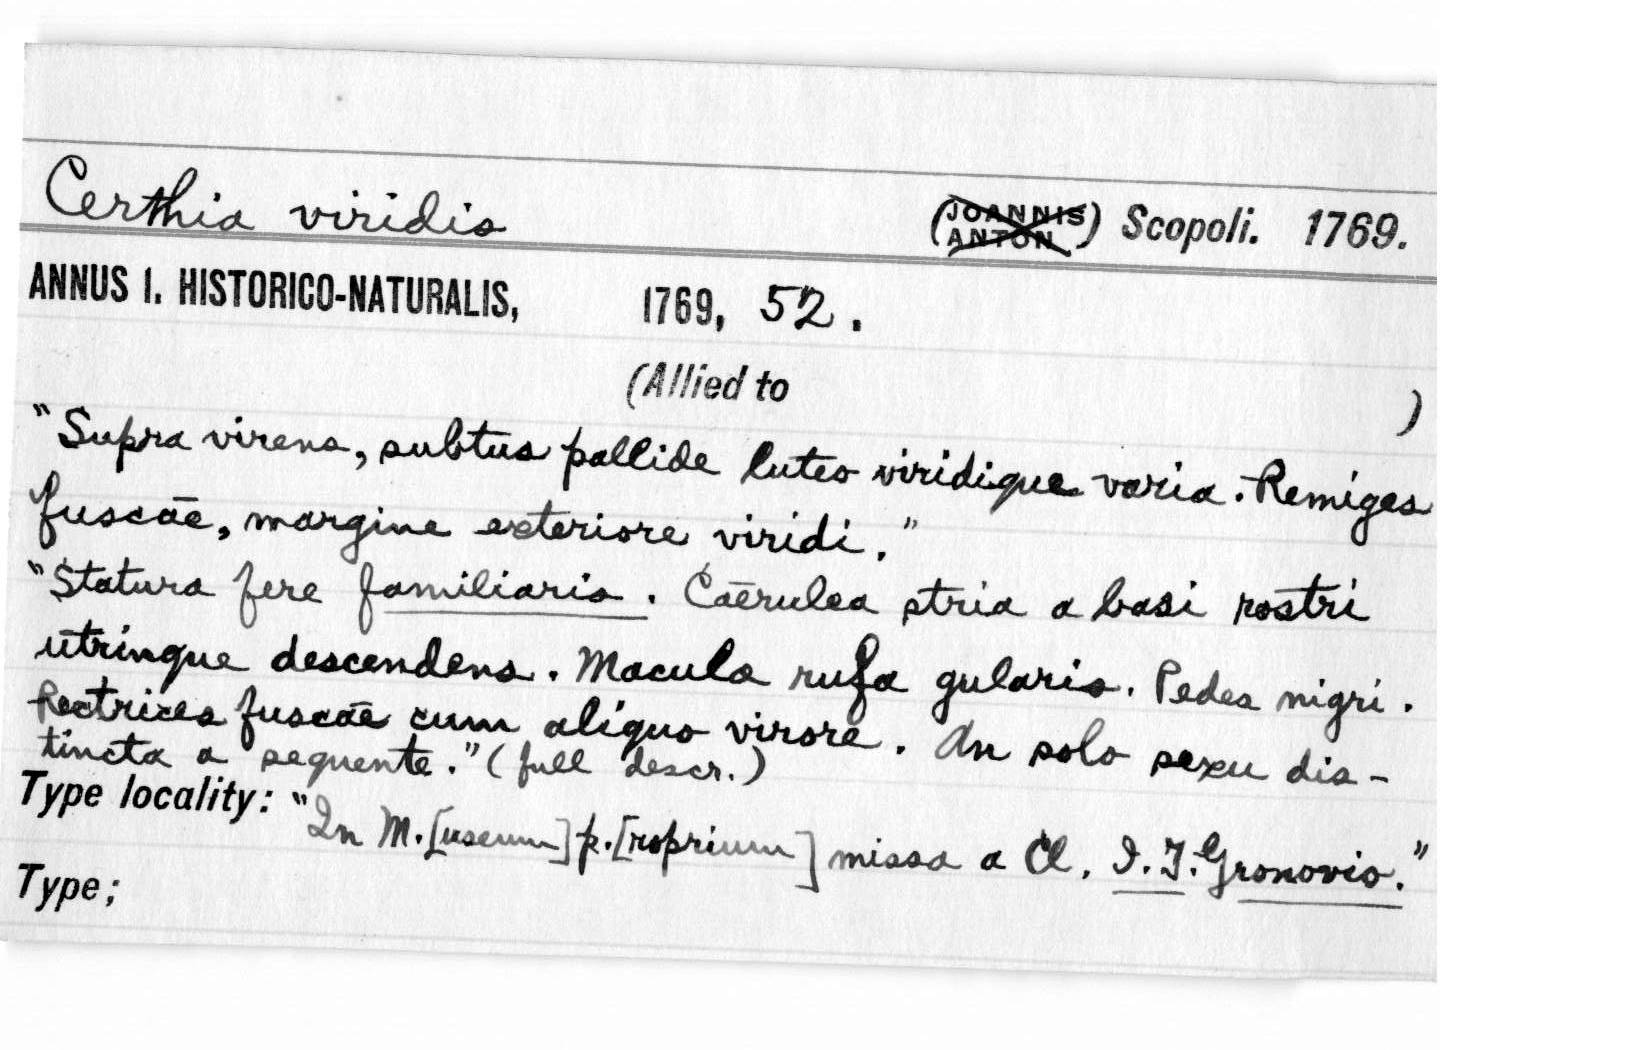 Certhia viridis (JOANNIS ANTON) Scopoli. 1769.
ANNUS I. HISTORICO-NATURALIS, 1769, 52.
(Allied to )
"Supra virens, subtus pallide luteo viridique varia. Remiges
fuscāe, margine exteriore viridi."
"Statura fere familiaris. Cāerulea stria a basi rostri
utrinque descendens. Macula rufa gularis. Pedes nigri.
Rectrices fuscāe cum aliquo virore. An solo sexu dis-
tincta a sequente." (full descr.)
Type locality: "In M.[useum] p.[roprium] missa a Cl. I. F. Gronovio."
Type;